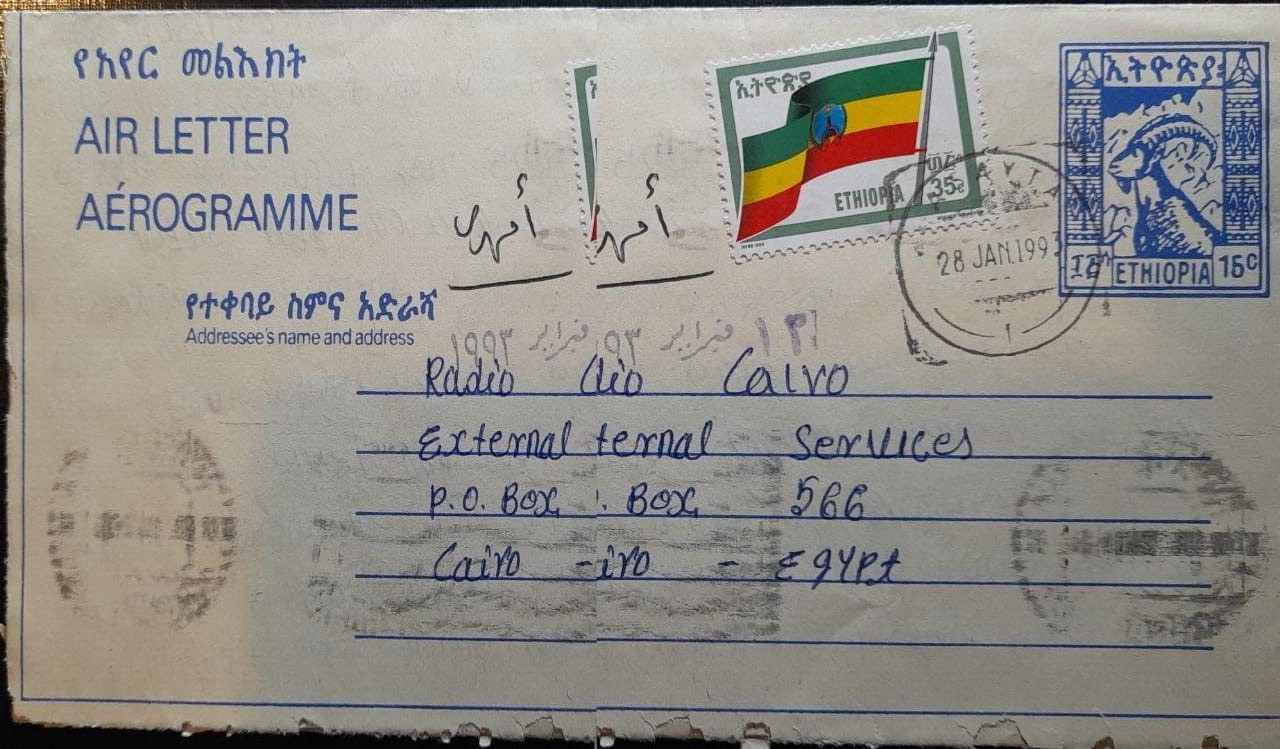 የአየር መልእክት
AIR LETTER
AÉROGRAMME
ኢትዮጵያ
ETHIOPIA 35c
ኢትዮጵያ
ETHIOPIA 15c
28 JAN.199
أمهري أمهر
የተቀባይ ስምና አድራሻ
Addressee's name and address
١٣ فبراير ٩٣ فبراير ١٩٩٣
Radio dio Cairo
External ternal Services
P.O. Box . Box 566
Cairo - iro - Egypt